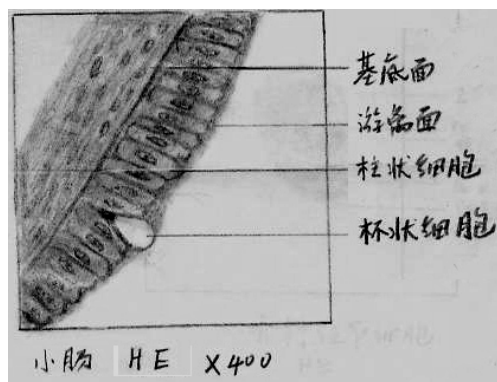 基底面
游离面
柱状细胞
杯状细胞
小肠 HE ×400